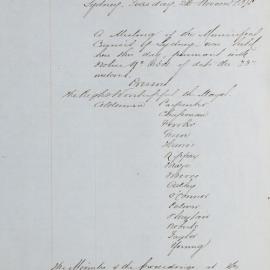 Sydney, Tuesday
A Meeting of the Municipal
Council of Sydney was held
here this day, pursuant with
Notice No. of date the
instant.
Present
The Right Worshipful the Mayor
Aldermen Carpenter
Chapman
Fowler
Green
Hunter
Kippax
Macro
Moore
Oatley
O'Connor
Palmer
Playfair
Roberts
Taylor
Young
The Minutes of the Proceedings at the